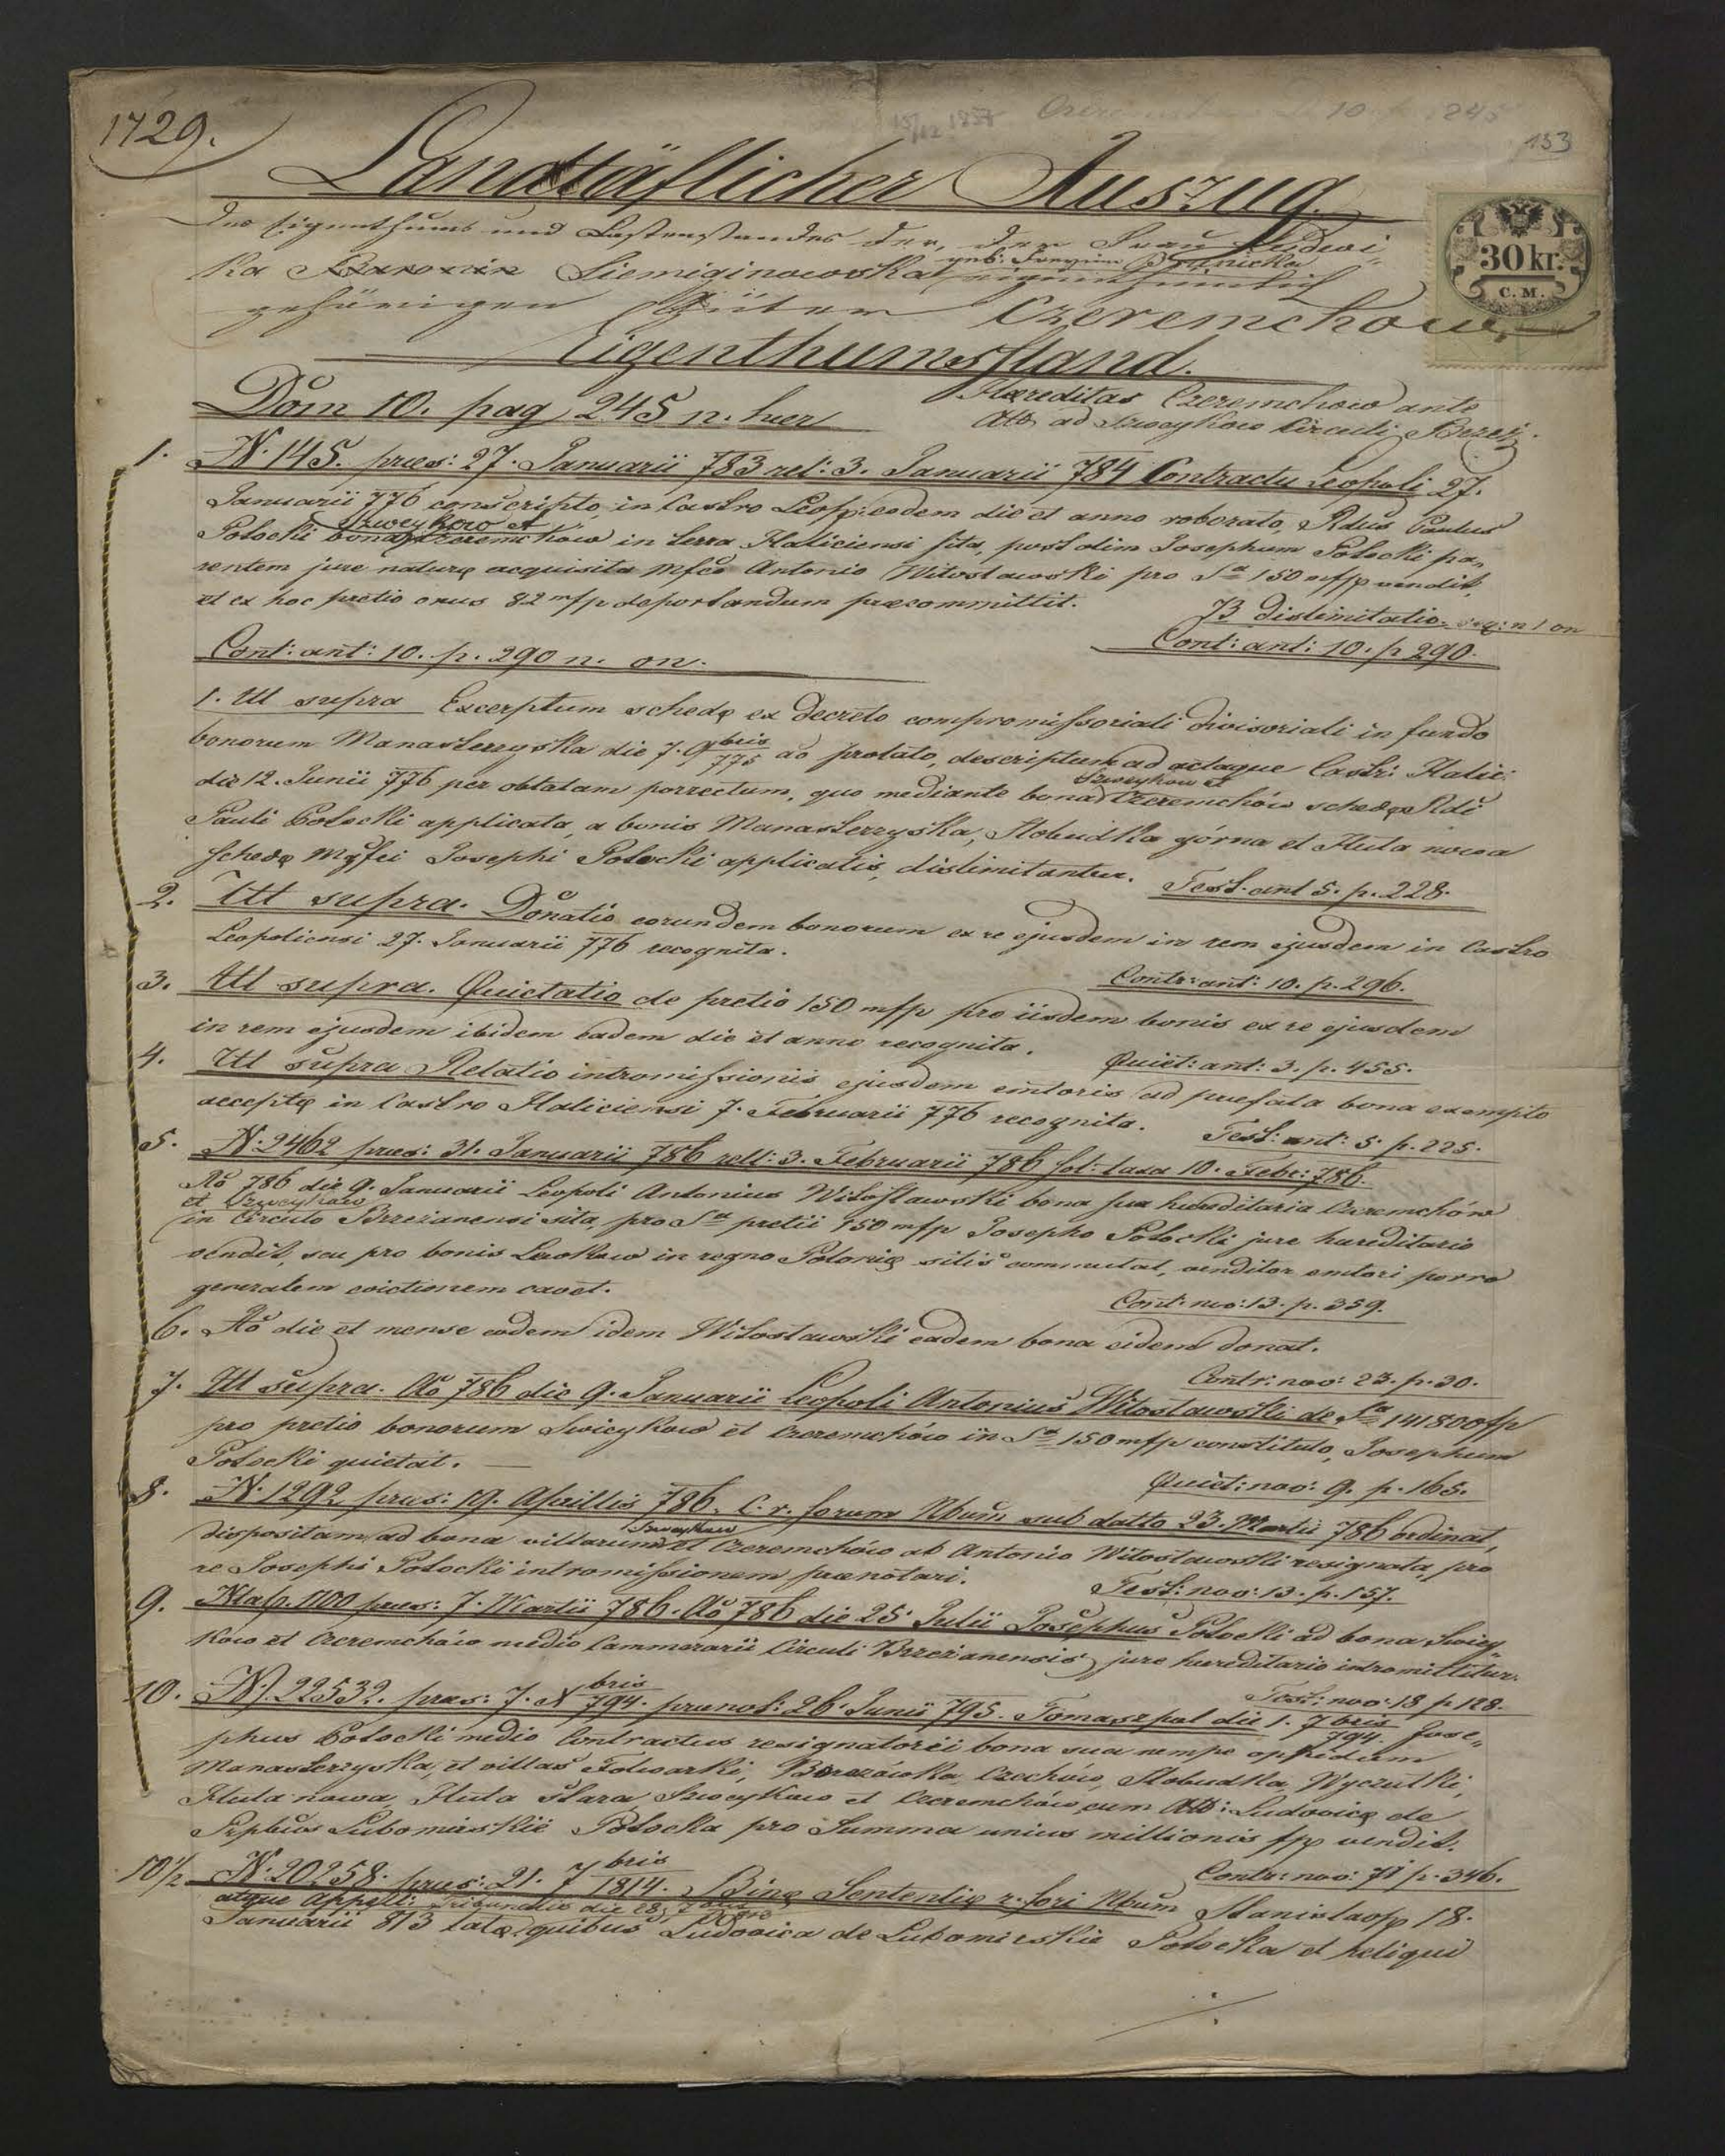 1729.
133
Landtäflicher Auszug
des Eigenthums und Lastenstandes der, der Frau Ludwi-
ka Siemiginowska geb. Brunicka eigenthümlich
gehörigen Güter Czeremchow
30 kr.
C. M.
Eigenthumsstand.
Dom 10. pag 245 n. haer
Haereditas Czeremchow ante
ad Szweykow Circuli Brzez.
1. N. 145. præs: 27. Januarii 783 rel: 3. Januarii 784 Contractu Leopoli 27.
Januarii 776 conscripto, in Castro Leop: eodem die et anno roborato, Rdus Paulus
Potocki bona Szweykow et Czeremchów in terra Haliciensi sita, post olim Josephum Potocki pa-
rentem jure naturę acquisita Mfco Antonio Witosławski pro Sa 150 mf/p vendit,
et ex hoc pretio onus 82 mf/p deportandum præcommittit.
B dislimitatio n 1 on
Cont: ant: 10. p 290.
Cont: ant: 10. p. 290 n. on.
1. Ut supra Excerptum schedę ex Decreto compromissoriali divisoriali in fundo
bonorum Manasterzyska die 7. 9bris 775 ac prolato, descriptum ad actaque Castr: Halic:
die 12. Junii 776 per oblatam porrectum, quo mediante bona Szweykow et Czeremchów schedę Rdi
Pauli Potocki applicata, a bonis Manasterzyska, Słobudka górna et Huta nowa
schedę Mgfci Josephi Potocki applicatis, dislimitantur.
Test. ant 5. p. 228.
2. Ut supra. Donatio eorundem bonorum ex re ejusdem in rem ejusdem in Castro
Leopoliensi 27. Januarii 776 recognita.
Contr: ant: 10. p. 296.
3. Ut supra. Quietatio de pretio 150 mf/p pro iisdem bonis ex re ejusdem
in rem ejusdem ibidem eadem die et anno recognita.
Quiet: ant: 3. p. 455.
4. Ut supra Relatio intromissionis ejusdem emtoris ad præfata bona exempto
acceptę in Castro Haliciensi 7. Februarii 776 recognita.
Test: ant: 5. p. 225.
5. N. 2462 præs: 31. Januarii 786 rell: 3. Februarii 786 sol: taxa 10. Febr: 786.
Ao 786 die 9. Januarii Leopoli Antonius Witosławski bona sua hæreditaria Czeremchów
et Szweykow
in Circulo Brzezanensi sita, pro Sa pretii 150 mf/p Josepho Potocki jure hæreditario
vendit, seu pro bonis in regno Polonię sitis commutat, venditor emtori porro
generalem evictionem cavet.
Cont: nov: 13. p. 359.
6. Ao die et mense eodem idem Witosławski eadem bona eidem donat.
Contr: nov: 23. p. 30.
7. Ut supra. Ao 786 die 9. Januarii Leopoli Antonius Witosławski de Sa 141800 f/p
pro pretio bonorum Swieykow et Czeremchów in Sa 150 mf/p constituto, Josephum
Potocki quietat.
Quiet: nov: 9. p. 165.
8. N. 1292 præs: 19. Aprillis 786. C. r. forum Nbum sub datto 23. Martii 786 ordinat,
dispositam ad bona villarum Szweykow et Czeremchów ab Antonio Witosławski resignata, pro
re Josephi Potocki intromissionem prænotari.
Test: nov: 13. p. 157.
9. 1100 præs: 7. Martii 786. Ao 786 die 25. Julii Josephus Potocki ad bona Swiey-
kow et Czeremchów medio Cammerarii Circuli Brzezanensis jure hæreditario intromittitur.
Test: nov: 18 p 128.
10. N. 22532. præs: 7. Xbris 794. prænot: 26. Junii 795. Tomaszpol die 1. 7bris 794. Jose-
phus Potocki medio Contractus resignatorii bona sua nempe oppidum
Manasterzyska, et villas Folwarki, Berezówka, Czechów, Słobudka, Wyczułki,
Huta nowa, Huta stara, Szweykow et Czeremchów cum Att: Ludovicę de
Pcpbus Lubomirskie Potocka pro Summa unius millionis f/p vendit.
Contr: nov: 71 p. 346.
10 1/2 N. 20258. præs: 21. 7bris 1814. Binę Sententię r. fori Nbum Stanislaop 18.
atque Appell: Tribunalis die 28.
Januarii 813 latę quibus Ludovica de Lubomirskie Potocka et reliqui
./.